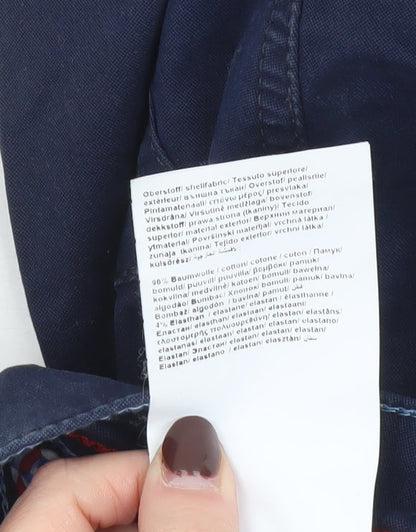 Oberstoff/ shellfabric/ Tessuto superiore/
extérieur/ външна тъкан/ Overstof/ pealisriie/
Pintamateriaali/ πρέσβλακα/
Virsdrāna/ Viršutinė medžiaga/ bovenstof/
dekkstoff/ prawa strona (tkaniny)/ Tecido
superior/ material exterior/ Верхний материал/
ytmaterial/ Površinski material/ vrchná látka/
zunaja tkanina/ Tejido exterior/ vrchní látka/
külsőrész/
96% Baumwolle / cotton / cotone / coton / Памук/
bomuld/ puuvill/ puuvilla/ βαμβάκι/ pamuk/
kokvilna/ medvilnė/ katoen/ bomull/ bawełna/
algodão/ Bumbac/ Хлопок/ bomull/ bombaž/
Bombaž/ algodón / bavlna/ pamut/ قطن
4% Elasthan/ elastane/ elastan / élasthanne /
Еластан/ elastan/ elastaan/ elastaani/
elastan/ elastāns/
elastanas/ elastaan/ elastan/ elastan/ elastano/
Elastan/ Эластан/ elastan/ elastan/ elastan/
Elastan/ elastano / elastan/ elasztán/